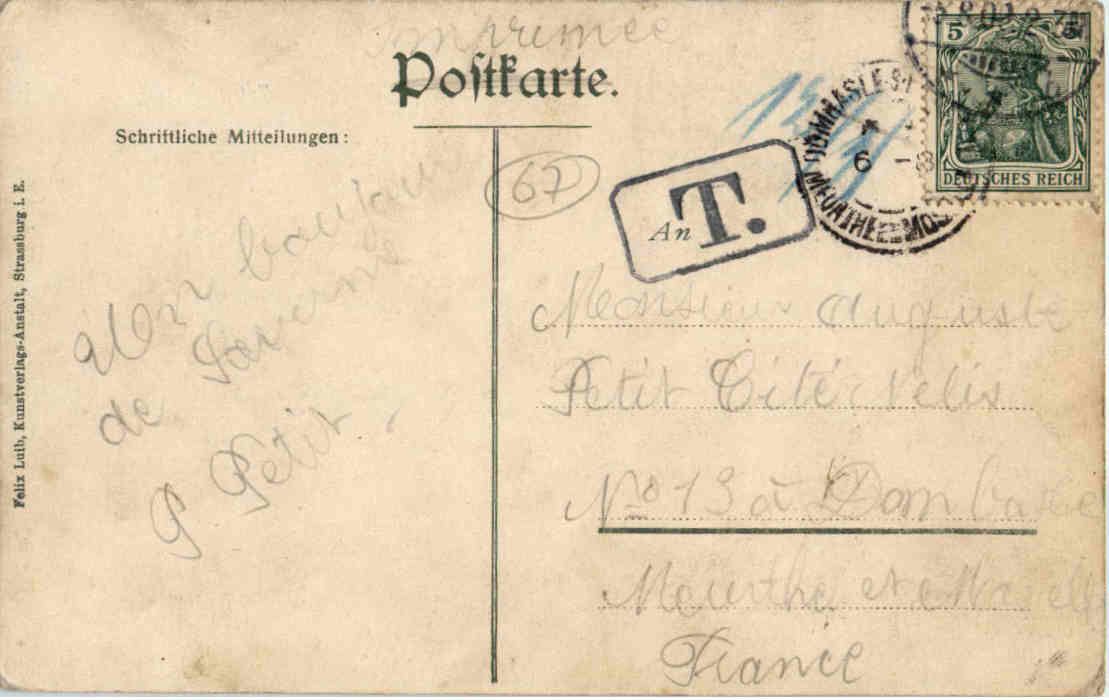 Imprimée
Postkarte.
Schriftliche Mitteilungen:
5 5
DEUTSCHES REICH
DOMBASLE-S
6
MEURTHE ET MOS
An T.
67
Mon bonjour
de Saverne
P Petit
Monsieur Auguste
Petit Cité
No 13 à Dombasle
Meurthe et Moselle
France
Felix Luib, Kunstverlags-Anstalt, Strassburg i. E.